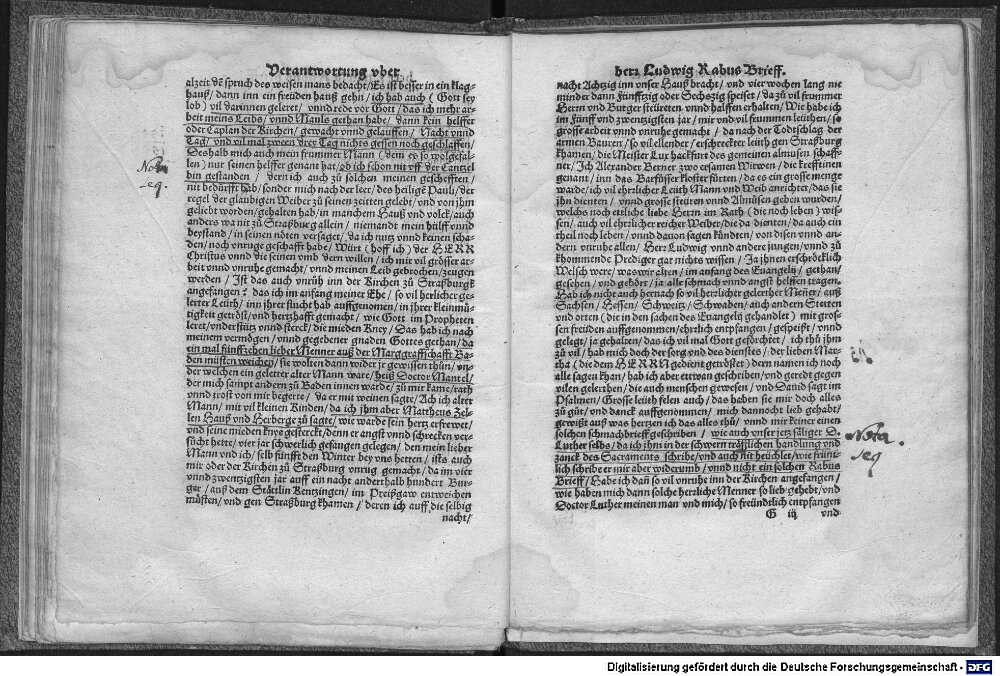 Verantwortung vber
alzeit dẽ spruch des weisen mans bedacht/ Es ist besser in ein klag-
hauß/ dann inn ein freüden hauß gehn/ ich hab auch (Gott sey
lob) vil darinnen geleret/ vnnd rede vor Gott/ das ich mehr ar-
beit meins Leibs/ vnnd Mauls gethan habe/ dann kein helffer
oder Caplan der Kirchen/ gewacht vnnd gelauffen/ Nacht vnnd
Tag/ vnd vil mal zween drey Tag nichts gessen noch geschlaffen/
Deshalb mich auch mein frummer Mann (dem es so wolgefal-
len) nur seinen helffer genant hat/ ob ich schon nit vff der Cantzel
bin gestanden/ dern ich auch zu solchen meinen geschefften/
nit bedürfft hab/ sonder mich nach der leer/ des heilige Pauli/ der
regel der glaubigen Weiber zu seinen zeitten gelebt/ vnd von jhm
geliebt worden/ gehalten hab/ in manchem Hauß vnd volck/ auch
anders wa nit zu Straßburg allein/ niemandt mein hülff vnnd
beystand/ in seinen nöten versaget/ da ich nutz vnnd keinen scha-
den/ noch vnruge geschafft habe/ Würt (hoff ich) der HERR
Christus vnnd die seinen vmb dern willen/ ich mir vil grösser ar-
beit vnnd vnruhe gemacht/ vnnd meinen Leib gebrochen/ zeugen
werden/ Ist das auch vnrüh inn der Kirchen zu Straßburgk
angefangen? das ich im anfang meiner Ehe/ so vil herlicher ge-
lerter Leüth/ inn jhrer flucht hab auffgenommen/ in jhrer kleinmü-
tigkeit getröst/ vnd hertzhafft gemacht/ wie Gott im Propheten
leret/ vnderstütz vnnd sterck/ die mieden Kney/ Das hab ich nach
meinem vermögen/ vnnd gegebener gnaden Gottes gethan/ da
ein mal fünffzehen lieber Menner auß der Marggraffschafft Ba-
den müsten weichen/ sie wolten dann wider jr gewissen thün/ vn-
der welchen ein geletter alter Mann ware/ heiß Doctor Mantel/
der mich sampt andern zu Baden innen warde/ zu mir kame/ rath
vnnd trost von mir begerte/ da er mit weinen sagte/ Ach ich alter
Mann/ mit vil kleinen Kinden/ da ich jhm aber Mattheus Zel-
len Hauß vnd Herberge zu sagte/ wie warde sein hertz erfrewet/
vnd seine mieden knye gesterckt/ denn er angst vnnd schrecken ver-
sücht hette/ vier jar schwerlich gefangen gelegen/ den mein lieber
Mann vnd ich/ selb fünfft den Winter bey vns hetten/ ists auch
mir oder der Kirchen zu Straßburg vnrug gemacht/ da im vier
vnnd zwentzigsten jar auff ein nacht anderthalb hundert Bur-
ger/ auß dem Stättlin Kentzingen/ im Preißgaw entweichen
müsten/ vnd gen Straßburg khamen/ deren ich auff die selbig
nacht/
Nota
seq
herr Ludwig Rabus Brieff.
nacht Achtzig inn vnser Hauß bracht/ vnd vier wochen lang nie
minder dann Fünfftzig oder Sechszig speiset/ da zu vil frummer
Herrn vnd Burger steüreten vnnd halffen erhalten/ Wie habe ich
im Fünff vnd zwentzigsten jar/ mir vnd vil frummen leüthen/ so
grosse arbeit vnnd vnruhe gemacht/ da nach der Todtschlag der
armen Bauren/ so vil ellender/ erschreckter leüth gen Straßburg
khamen/ die Meister Lux hackfurt des gemeinen almusen schaff-
ner/ Ich Alexander Berner zwo ersamen Witwen/ die kreftinen
genant/ inn das Barfüsser kloster fürten/ da es ein grosse menge
warde/ ich vil ehrlicher Leüth Mann vnd Weib anrichtet/ das sie
jhn dienten/ vnnd grosse steüren vnnd Almüsen geben wurden/
welchs noch ettliche liebe Herrn im Rath (die noch leben) wis-
sen/ auch vil ehrlicher reicher Weiber/ die da dienten/ da auch ein
theil noch leben/ vnnd dauon sagen kündten/ von disen vnnd an-
dern vnruhe allen/ Herr Ludwig vnnd andere jungen/ vnnd zü
kommende Prediger gar nichts wissen/ Ja jhnen erschröcklich
Welsch were/ was wir alten/ im anfang des Euangelij/ gethan/
gesehen/ vnd gehört/ ja alle schmach vnnd angst helffen tragen.
Hab ich nicht auch hernach so vil herzlicher gelerther Meñer/ auß
Sachsen/ Hessen/ Schweitz/ Schwaben/ auch andern Stetten
vnd orten (die in den sachen des Euangelij gehandlet) mit gros-
sen freüden auffgenommen/ ehrlich entpfangen/ gespeißt/ vnnd
gelegt/ ja gehalten/ das ich vil mal Gott geförchtet/ ich thü jhm
zü vil/ hab mich doch der sorg vnd des dienstes/ der lieben Mar-
tha (die dem HERRN gedient getröstet) dern namen ich noch
alle sagen khan/ hab ich aber ettwan geschriben/ vnd geredt gegen
vilen gelerthen/ die auch menschen gewesen/ vnd Dauid sagt im
Psalmen/ Grosse leüth felen auch/ das haben sie mir doch alles
zü güt/ vnd danck auffgenommen/ mich dannocht lieb gehabt/
gewißt auß was hertzen ich das alles thü/ vnnd mir keiner einen
solchen schmachbrieff geschriben/ wie auch vnser jetz säliger D.
Luther selbs/ da ich jhm in der schwern träfflichen handlung vnd
zanck des Sacraments schribe/ vnd auch nit heüchlet/ wie frünt-
lich schribe er mir aber widerumb/ vnnd nicht ein solchen Rabus
Brieff/ Habe ich dañ so vil vnruhe inn der Kirchen angefangen/
wie haben mich dann solche herrliche Menner so lieb gehebt/ vnd
Doctor Luther meinen man vnd mich/ so freündtlich entpfangen
G iij vnd
Nota.
seq
Digitalisierung gefördert durch die Deutsche Forschungsgemeinschaft - DFG